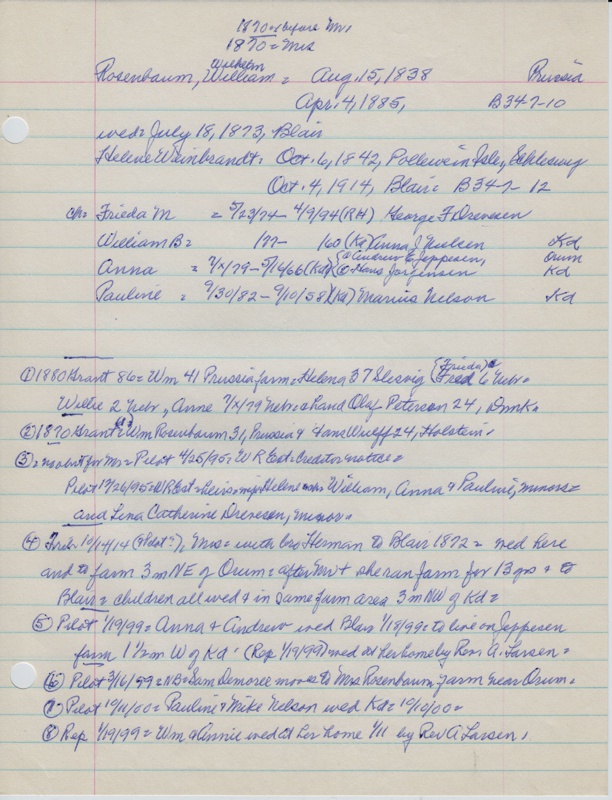 1870 = before Mr.
1870 = Mrs
Wilhelm
Rosenbaum, William = Aug. 15, 1838 Prussia
Apr. 4, 1885, B347-10
wed = July 18, 1873, Blair
Helene Weinbrandt = Oct. 6, 1842, Isle, Schleswig
Oct. 4, 1914, Blair = B347- 12
ch = Frieda M = 5/23/74 - 4/9/94 (RH) George F Drevesen
William B = 177 - 160 (Kd) Anna J Nielsen Kd
Anna = 7/X/79 - 5/16/66 (Kd) ① Andrew E Jeppesen, Orum
② Hans Jorgensen Kd
Pauline = 9/30/82 - 9/10/58 (Kd) Marius Nelson Kd
① 1880 Grant 86 = Wm 41 Prussia farm = Helena 37 Slesvig (Frieda)
Fred 6 Nebr =
Willie 2 Nebr, Anne 7/X/79 Nebr = hand Olaf Peterson 24, Dmk =
② 1870 Grant = Wm Rosenbaum 31, Prussia & Hans Wulff 24, Holstein.
③ = no obit for Mr = Pilot 4/25/95 = WR Est = Creditor notice =
Pilot 12/26/95 = WR Est = heirs = Helene William, Anna & Pauline, minors =
and Lena Catherine Drevesen, minor =
④ 10/14/14 (& Pilot), Mrs = with bro Herman to Blair 1872 = wed here
and to farm 3 m NE of Orum = after Mr + she ran farm for 13 yrs & to
Blair = children all wed & in same farm area 3 m NW of Kd =
⑤ Pilot 1/19/99 = Anna & Andrew wed Blair 1/18/99 = to live on Jeppesen
farm 1 1/2 m W of Kd (Rep 1/19/99) wed at her home by Rev. A. Larsen =
⑥ Pilot 3/16/99 = NB = Sam Demoree moves to Mrs Rosenbaum farm near Orum =
⑦ Pilot 10/11/00 = Pauline & Mike Nelson wed Kd = 10/10/00 =
⑧ Rep 1/19/99 = Wm & Annie wed at her home 1/11 by Rev A Larsen,